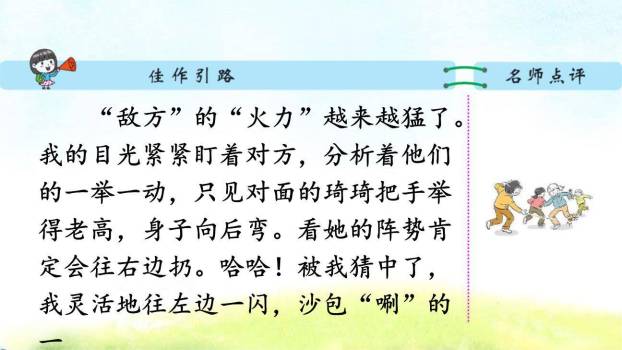 佳作引路
名师点评
“敌方”的“火力”越来越猛了。
我的目光紧紧盯着对方，分析着他们
的一举一动，只见对面的琦琦把手举
得老高，身子向后弯。看她的阵势肯
定会往右边扔。哈哈！被我猜中了，
我灵活地往左边一闪，沙包“唰”的
一